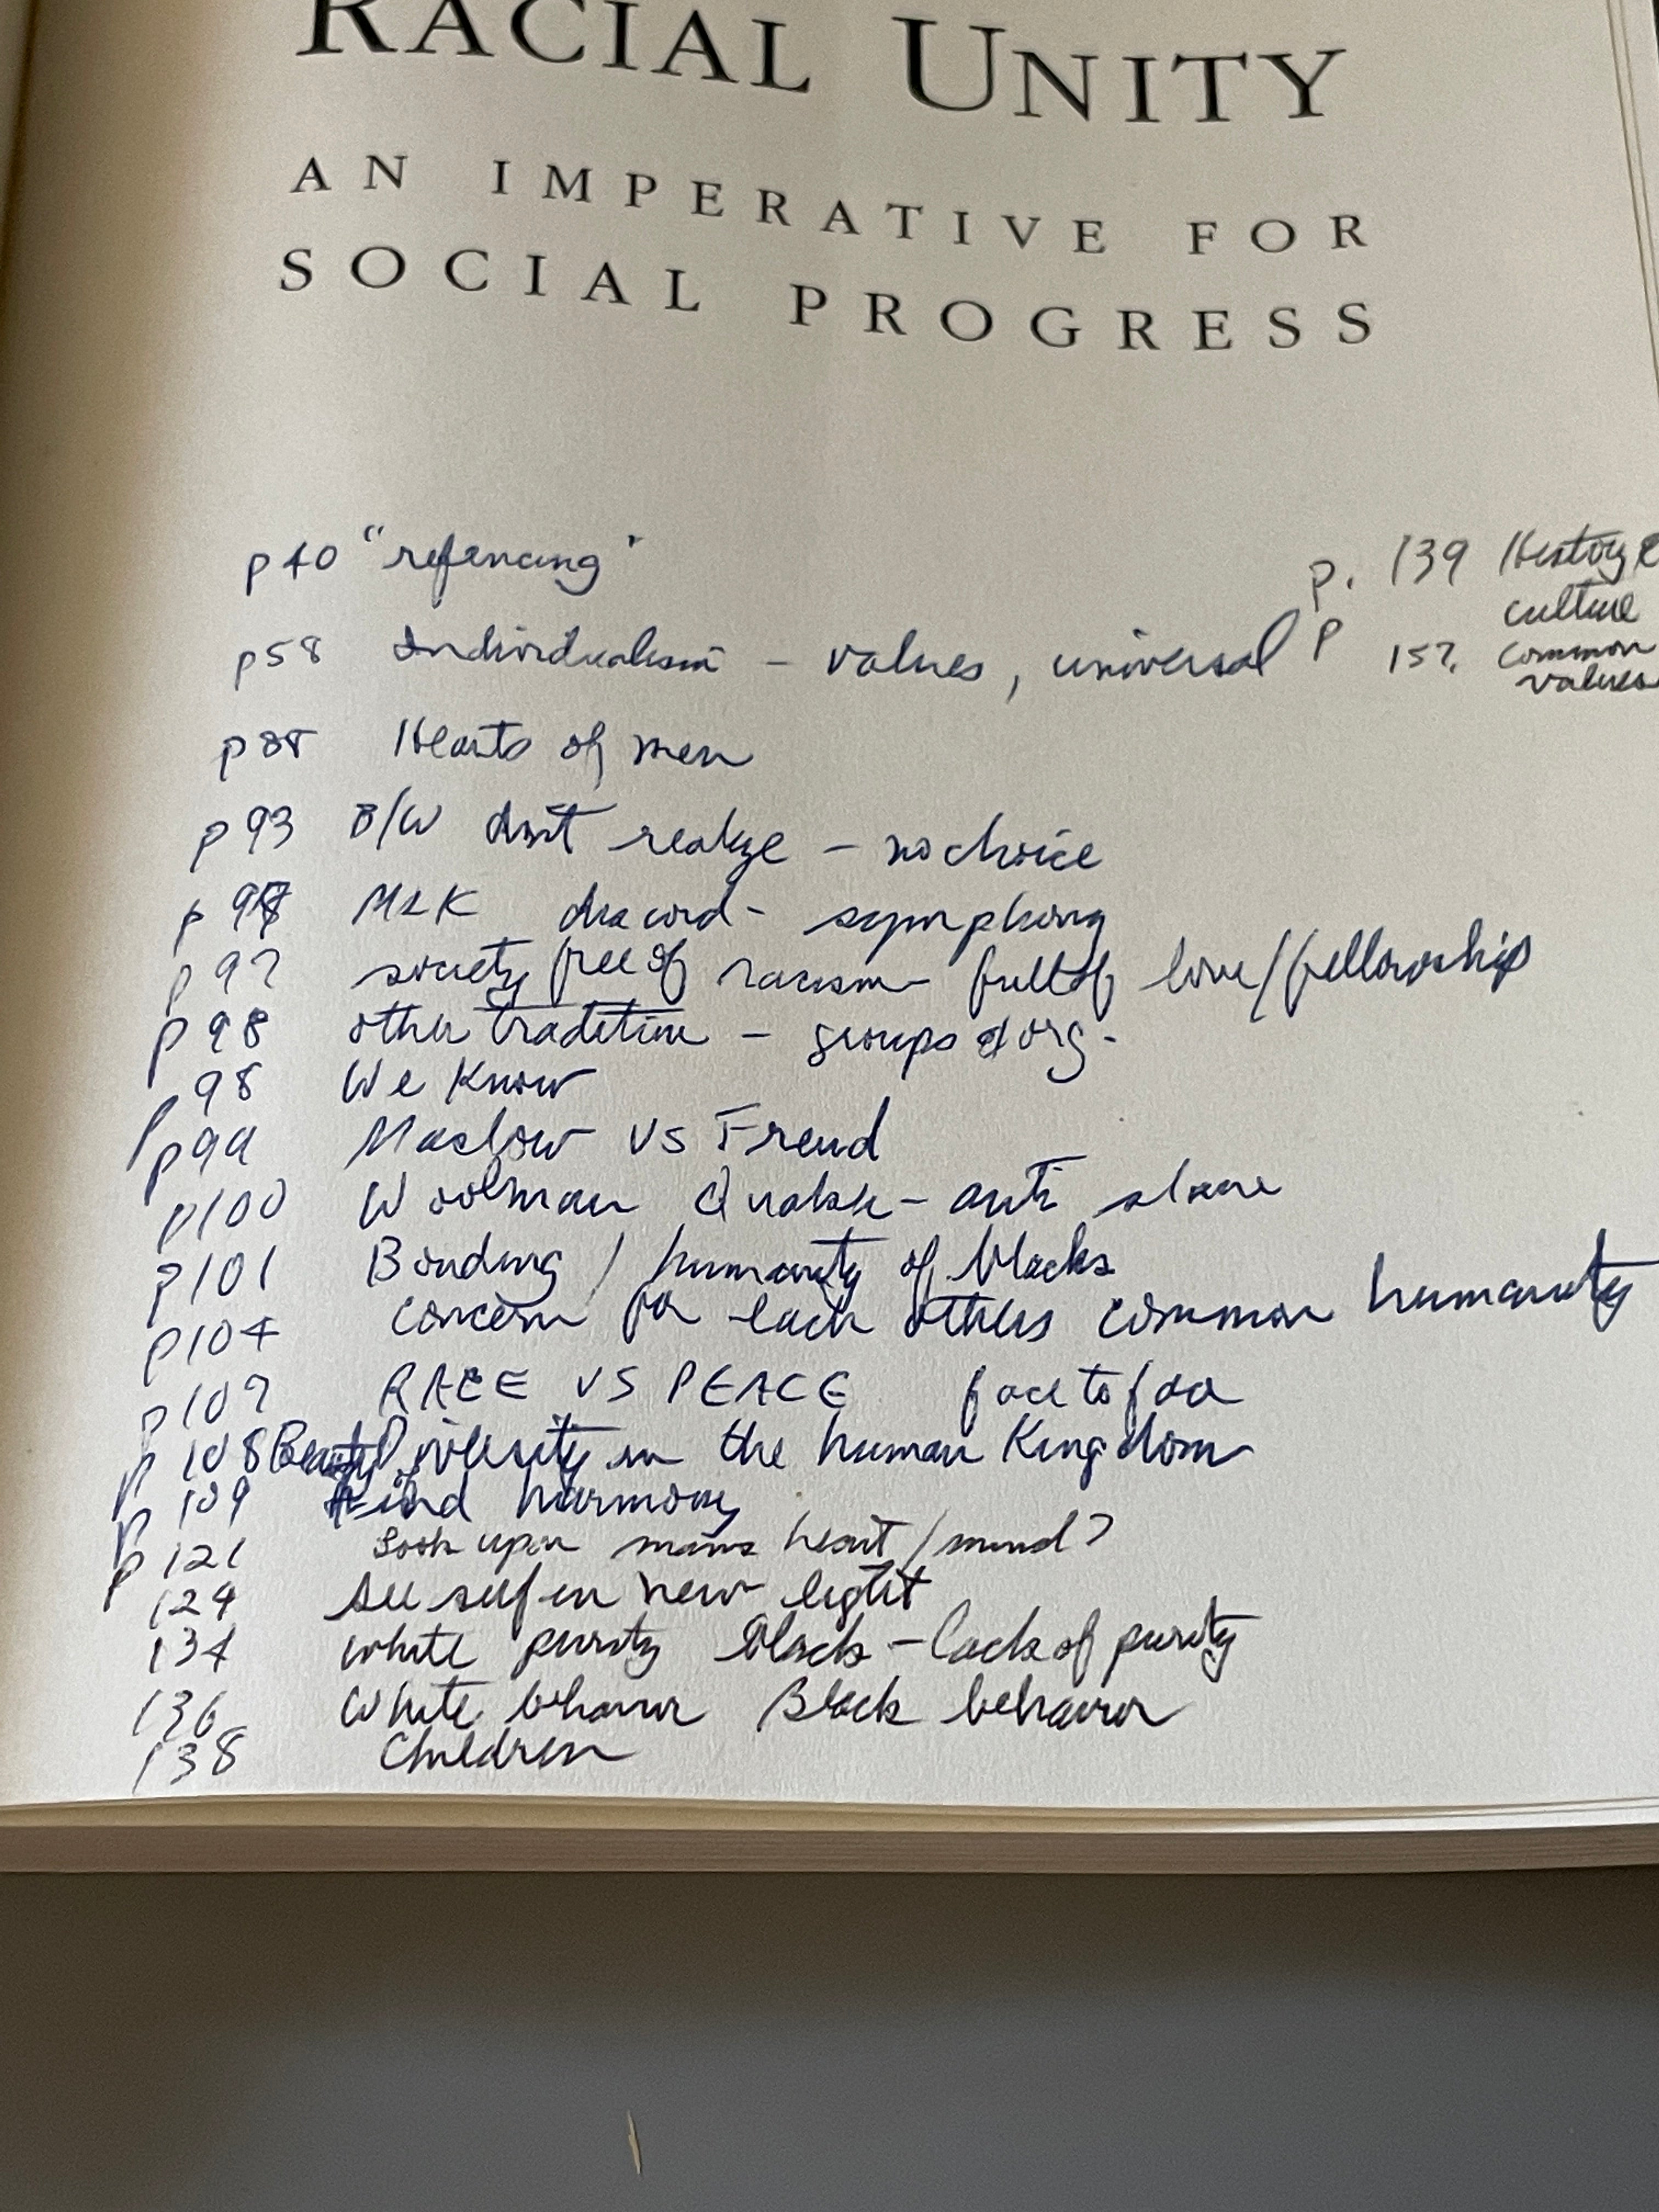 RACIAL UNITY
AN IMPERATIVE FOR
SOCIAL PROGRESS
p40 "refencing"
p58 Individualism - values, universal
p88 Hearts of men
p93 B/W don't realize - no choice
p 97 MLK discord - symphony
p 97 society free of racism - full of love/fellowship
p 98 other tradition - groups & org.
p 98 We Know
p99 Maslow VS Freud
p100 Woolman Quaker - anti slave
p101 Bonding / humanity of blacks
p104 concern for each others common humanity
p107 RACE VS PEACE face to face
p 108 Beauty of Diversity in the human Kingdom
p 109 Kind harmony
p 121 Look upon mans heart/mind?
124 see self in new light
134 white purity Black - lack of purity
136 White behavior Black behavior
138 Children
p. 139 History &
culture
p 157. common
values